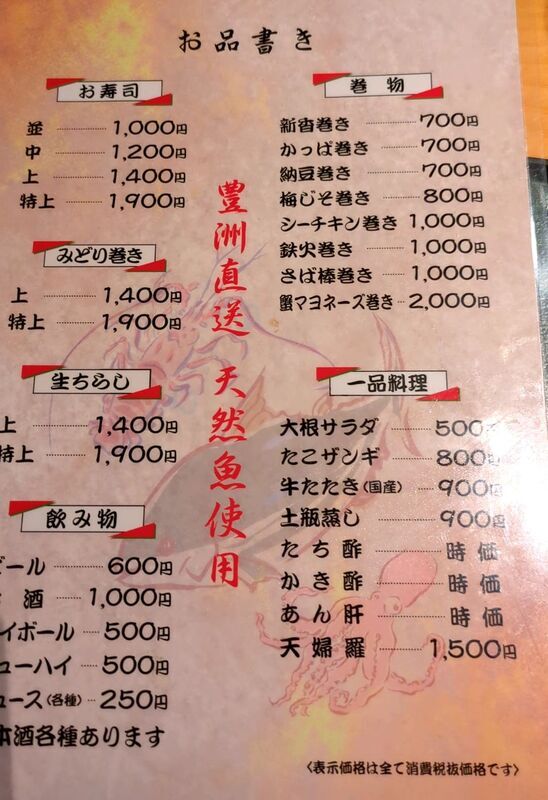 お品書き
お寿司
並 1,000円
中 1,200円
上 1,400円
特上 1,900円
みどり巻き
上 1,400円
特上 1,900円
生ちらし
上 1,400円
特上 1,900円
飲み物
ビール 600円
酒 1,000円
イボール 500円
ューハイ 500円
ュース(各種) 250円
本酒各種あります
豊洲直送 天然魚使用
巻物
新香巻き 700円
かっぱ巻き 700円
納豆巻き 700円
梅じそ巻き 800円
シーチキン巻き 1,000円
鉄火巻き 1,000円
さば棒巻き 1,000円
蟹マヨネーズ巻き 2,000円
一品料理
大根サラダ 500円
たこザンギ 800円
牛たたき(国産) 900円
土瓶蒸し 900円
たち酢 時価
かき酢 時価
あん肝 時価
天婦羅 1,500円
〈表示価格は全て消費税抜価格です〉